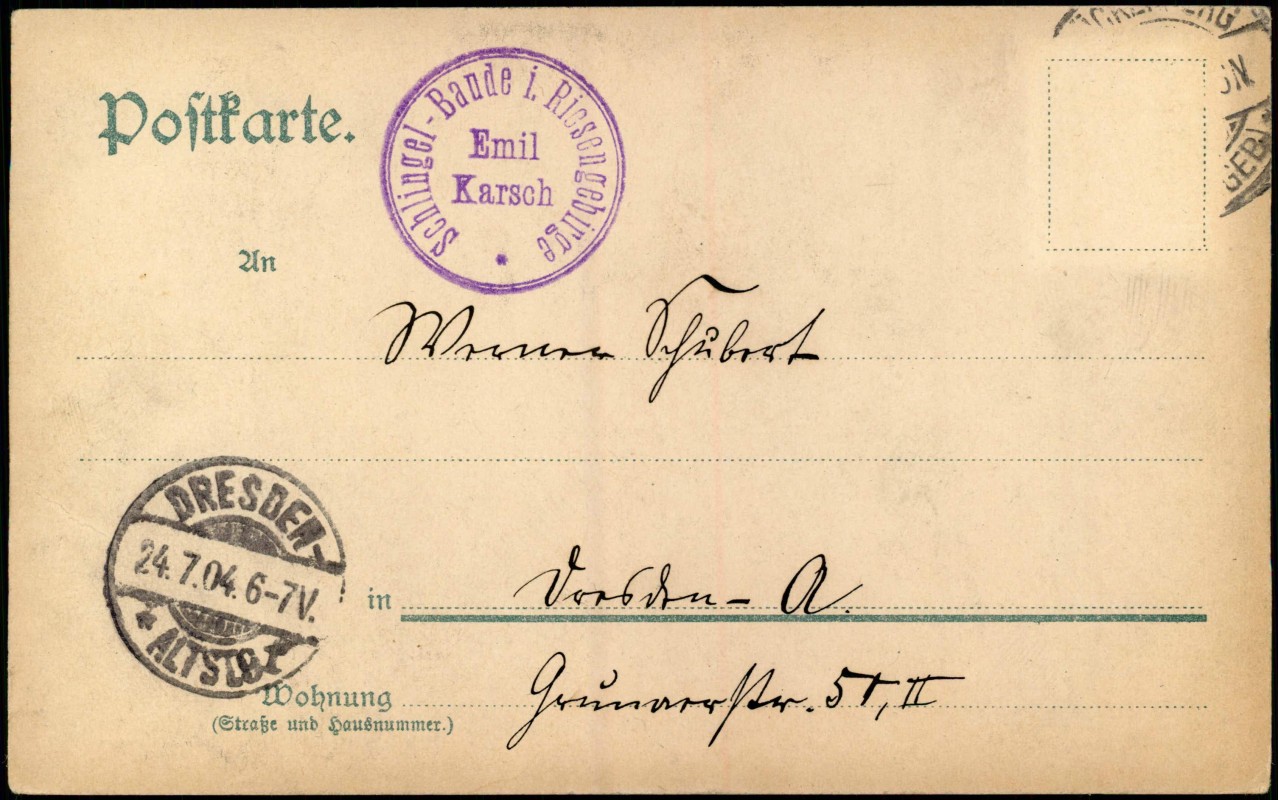 Postkarte.
Schlingel-Baude i. Riesengebirge
Emil
Karsch
An
Werner Schubert
DRESDEN-
24.7.04. 6-7V.
ALTST.
in Dresden - A.
Wohnung Grunaerstr. 51, II
(Straße und Hausnummer.)